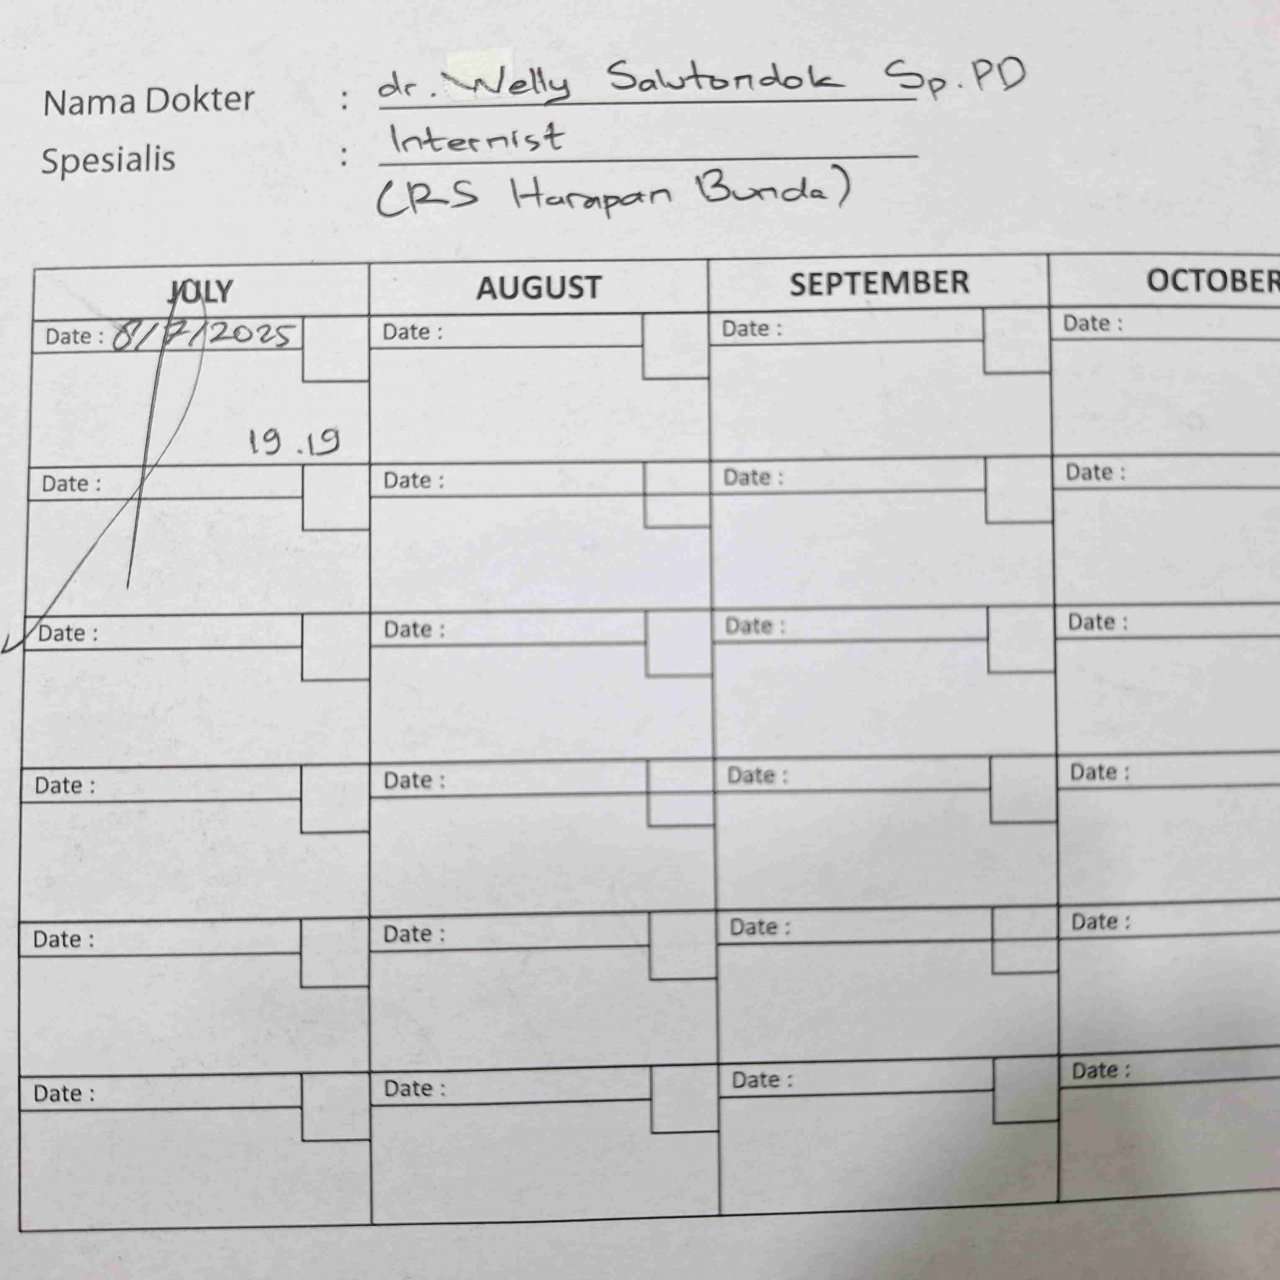 Nama Dokter : dr. Welly Salutondok Sp.PD
Spesialis : Internist
(RS Harapan Bunda)
JULY AUGUST SEPTEMBER OCTOBER
Date : 8/7/2025 Date : Date : Date :
19.19
Date : Date : Date : Date :
Date : Date : Date : Date :
Date : Date : Date : Date :
Date : Date : Date : Date :
Date : Date : Date : Date :